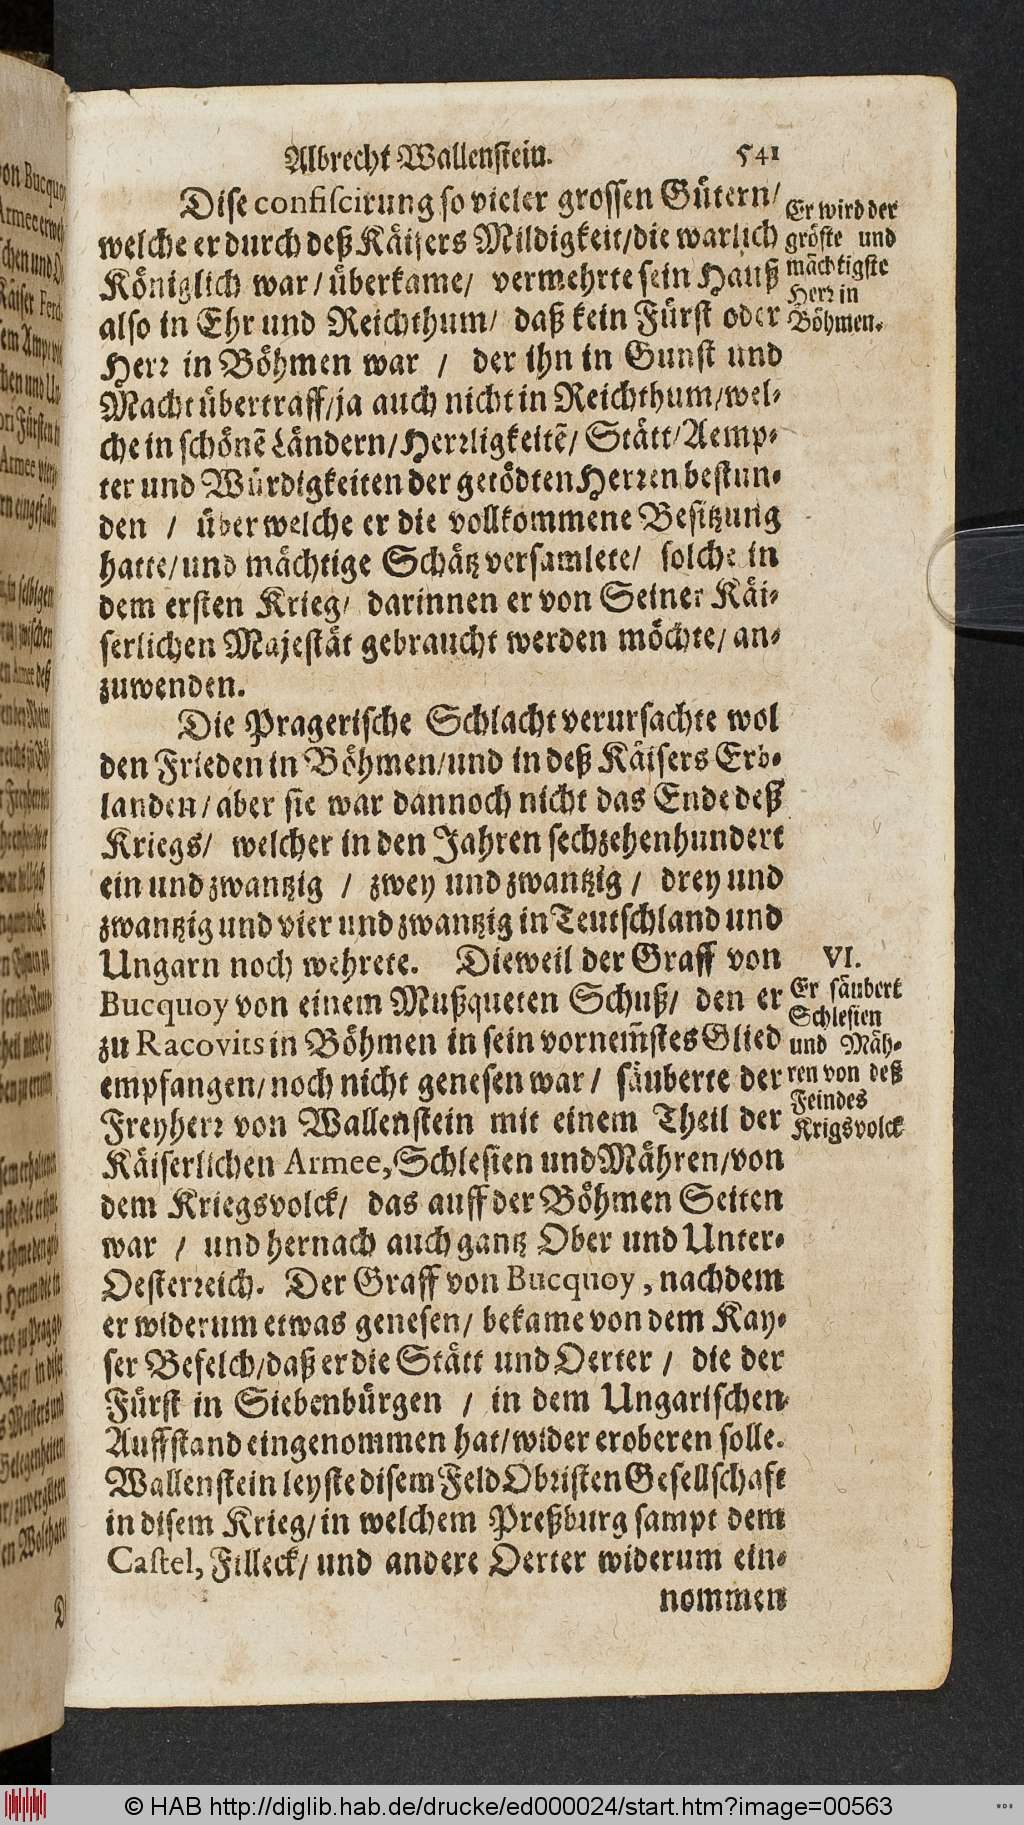 Albrecht Wallenstein. 541
Dise confiscirung so vieler grossen Gütern/
welche er durch deß Käisers Mildigkeit/die warlich
Königlich war/ überkame/ vermehrte sein Hauß
also in Ehr und Reichthum/ daß kein Fürst oder
Herꝛ in Böhmen war / der ihn in Gunst und
Macht übertraff/ja auch nicht in Reichthum/wel-
che in schönẽ Ländern/Herꝛligkeitẽ/ Stätt/Aemp-
ter und Würdigkeiten der getödten Herꝛen bestun-
den / über welche er die vollkommene Besitzung
hatte/und mächtige Schätz versamlete/ solche in
dem ersten Krieg/ darinnen er von Seiner Käi-
serlichen Majestät gebraucht werden möchte/ an-
zuwenden.
Er wird der
gröste und
mächtigste
Herꝛ in
Böhmen.
Die Pragerische Schlacht verursachte wol
den Frieden in Böhmen/und in deß Käisers Erb-
landen/aber sie war dannoch nicht das Ende deß
Kriegs/ welcher in den Jahren sechzehenhundert
ein und zwantzig / zwey und zwantzig/ drey und
zwantzig und vier und zwantzig in Teutschland und
Ungarn noch wehrete. Dieweil der Graff von
Bucquoy von einem Mußqueten Schuß/ den er
zu Racovits in Böhmen in sein vornem̃stes Glied
empfangen/noch nicht genesen war/ säuberte der
Freyherꝛ von Wallenstein mit einem Theil der
Käiserlichen Armee, Schlesien und Mähren/von
dem Kriegsvolck/ das auff der Böhmen Seiten
war / und hernach auch gantz Ober und Unter-
Oesterꝛeich. Der Graff von Bucquoy, nachdem
er widerum etwas genesen/ bekame von dem Kay-
ser Befelch/daß er die Stätt und Oerter / die der
Fürst in Siebenbürgen / in dem Ungarischen
Auffstand eingenommen hat/wider eroberen solle.
Wallenstein leyste disem Feld Obristen Gesellschaft
in disem Krieg/in welchem Preßburg sampt dem
Castel, Filleck/ und andere Oerter widerum ein-
nommen
VI.
Er säubert
Schlesien
und Mäh-
ren von deß
Feindes
Krigsvolck
© HAB http://diglib.hab.de/drucke/ed000024/start.htm?image=00563